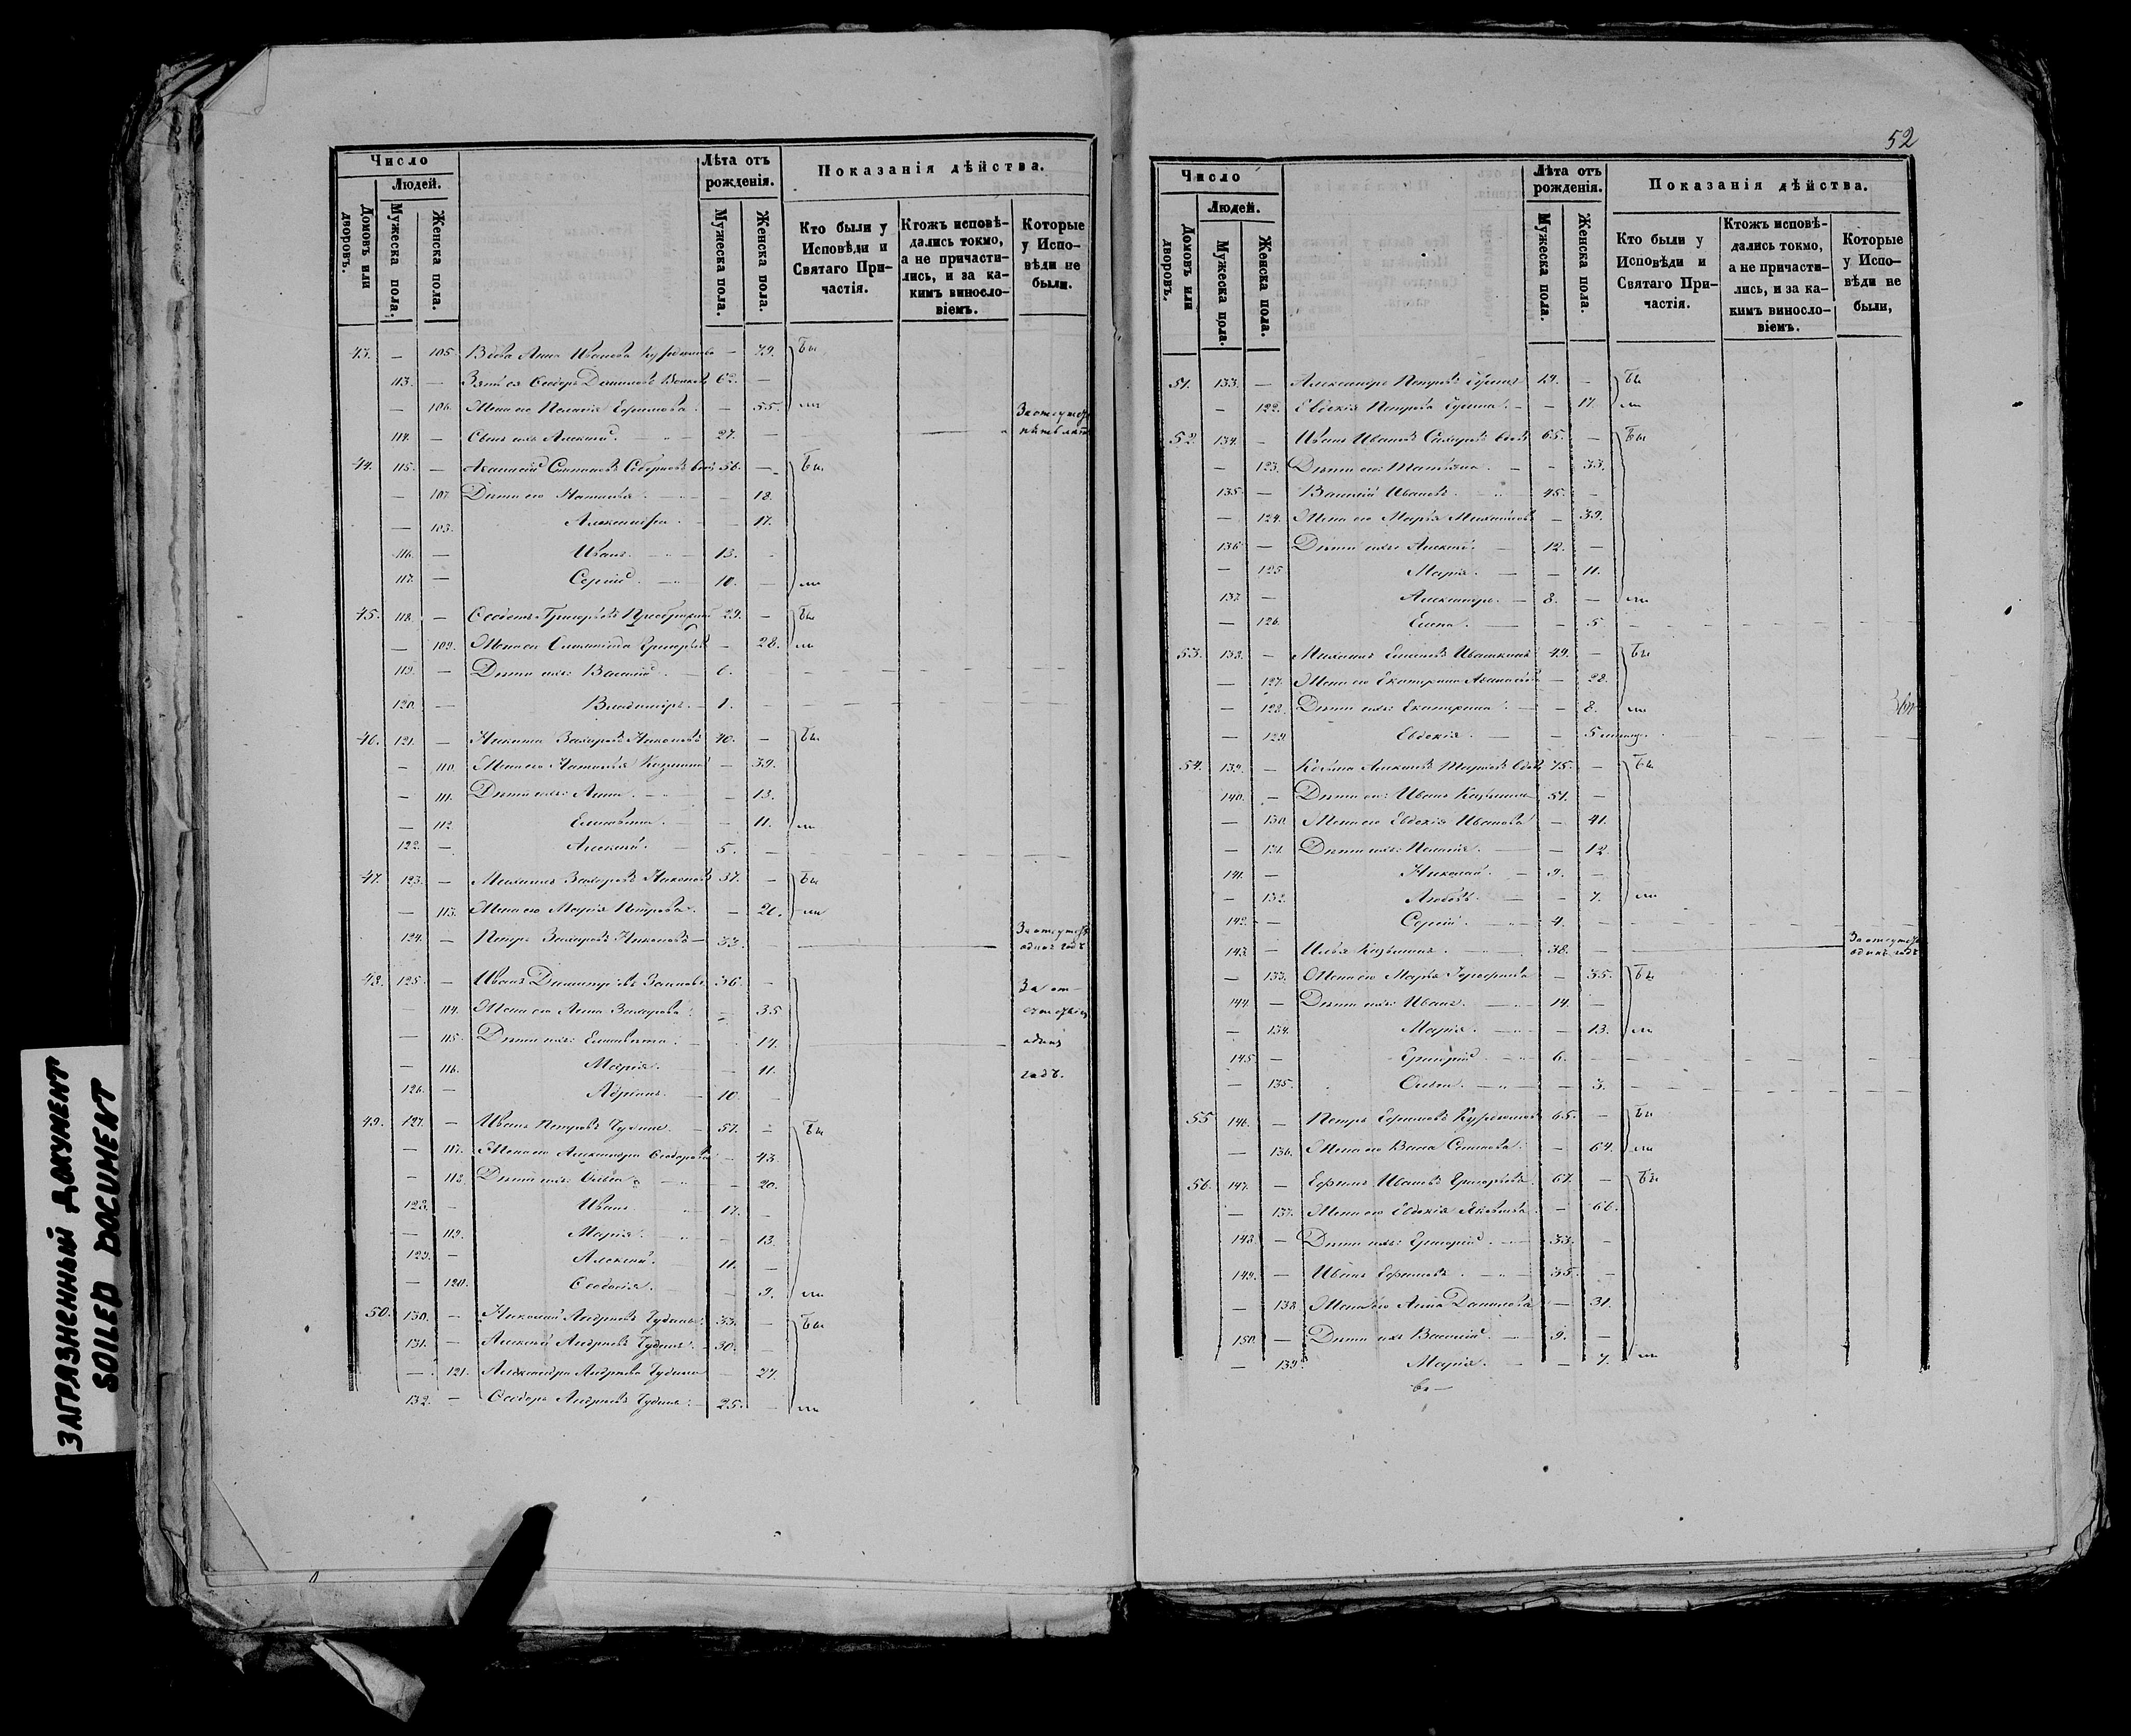 52
Число
Людей.
Домовъ или дворовъ.
Мужеска пола.
Женска пола.
Лѣта отъ рожденія.
Мужеска пола.
Женска пола.
Показанія дѣйства.
Кто были у Исповѣди и Святаго При-частія.
Ктожъ исповѣ-дались токмо, а не причасти-лись, и за ка-кимъ винословіемъ.
Которые у Испо-вѣди не были.
43. — 105. Вдова Анна Иванова — 79. Бы
113. — Зять ея Ѳедоръ 62. —
— 106. Жена его Пелагія Ефимова. — 55. ли
114. — Сынъ ихъ Алексѣй. 27. — За отсутст. пять лѣтъ
44. 115. — Аѳанасій 56. — Бы
— 107. Дѣти его Наталья. — 18.
— 108. Александра. — 17.
116. — Иванъ. 13. —
117. — Сергій. 10. — ли
45. 118. — Григорьевъ 29. — Бы
— 109. Жена его Григорьева — 28. ли
119. — Дѣти ихъ: Василій. 6. —
120. — Владиміръ. 1. —
46. 121. — Никита Захаровъ Никоновъ 40. — Бы
— 110. Жена его Наталья — 39.
— 111. Дѣти ихъ: Анна. — 13.
— 112. Елисавета. — 11. ли
122. — Алексѣй. 5. —
47. 123. — Михаилъ Захаровъ Никоновъ 37. — Бы
— 113. Жена его Марія Петрова. — 26. ли
124. — Петръ Захаровъ Никоновъ 33. — За отсутст. одинъ годъ
48. 125. — Иванъ Димитріевъ 36. — За от-
— 114. Жена его Анна Захарова. — 35
— 115. Дѣти ихъ: Елисавета. — 14. одинъ
— 116. Марія. — 11. годъ.
126. — Адріанъ. 10. —
49. 127. — Иванъ Петровъ Чудинъ. 57. — Бы
— 117. Жена его Александра Ѳеодорова — 43.
— 118. Дѣти ихъ: Ольга — 20.
128. — Иванъ. 17. —
— 119. Марія. — 13.
129. — Алексѣй. 11. —
— 120. Ѳеодосія. — 9. ли
50. 130. — Николай Андреевъ Чудинъ. 33. — Бы
131. — Алексѣй Андреевъ Чудинъ. 30. —
— 121. Александра Андреева Чудина — 27.
132. — Ѳеодоръ Андреевъ Чудинъ. 25. — ли
Число
Людей.
Домовъ или дворовъ.
Мужеска пола.
Женска пола.
Лѣта отъ рожденія.
Мужеска пола.
Женска пола.
Показанія дѣйства.
Кто были у Исповѣди и Святаго При-частія.
Ктожъ исповѣ-дались токмо, а не причасти-лись, и за ка-кимъ винословіемъ.
Которые у Испо-вѣди не были,
51. 133. — Александръ Петровъ 19. — Бы
— 122. Евдокія Петрова — 17. ли
52. 134. — Иванъ Ивановъ вдовъ 65. — Бы
— 123. Дѣти его: Татьяна. — 33.
135. — Василій Ивановъ. 45. —
— 124. Жена его Марія Михайлова — 39.
136. — Дѣти ихъ: Алексѣй. 12. —
— 125. Марія. — 11.
137. — Александръ. 8. — ли
— 126. Елена. — 5.
53. 138. — Михаилъ Ивашкинъ 49. — Бы
— 127. Жена его Екатерина Аѳанасіева — 28.
— 128. Дѣти ихъ: Екатерина. — 8. ли
— 129. Евдокія. — 5 мѣсяц.
54. 139. — Козьма Алексѣевъ вдовъ 75. — Бы
140. — Дѣти его: Иванъ Козьминъ 51. —
— 130. Жена его Евдокія Иванова — 41.
— 131. Дѣти ихъ: Пелагія. — 12.
141. — Николай. 9. —
— 132. Любовь. — 7. ли
142. — Сергій. 4. —
143. — Илья Козьминъ. 38. — За отсутст. одинъ годъ
— 133. Жена его Марія — 35. Бы
144. — Дѣти ихъ: Иванъ. 14. —
— 134. Марія. — 13. ли
145. — Григорій. 6. —
— 135. Ольга. — 3.
55. 146. — Петръ Ефимовъ 65. — Бы
— 136. Жена его — 64. ли
56. 147. — Ефимъ Ивановъ Григорьевъ. 67. — Бы
— 137. Жена его Евдокія Яковлева. — 66.
148. — Дѣти ихъ: Григорій. 33. —
149. — Иванъ Ефимовъ. 35. —
— 138. Жена его Анна Данилова — 31.
150. — Дѣти ихъ Василій. 9. —
— 139. Марія. — 7. ли
ЗАГРЯЗНЕННЫЙ ДОКУМЕНТ
SOILED DOCUMENT